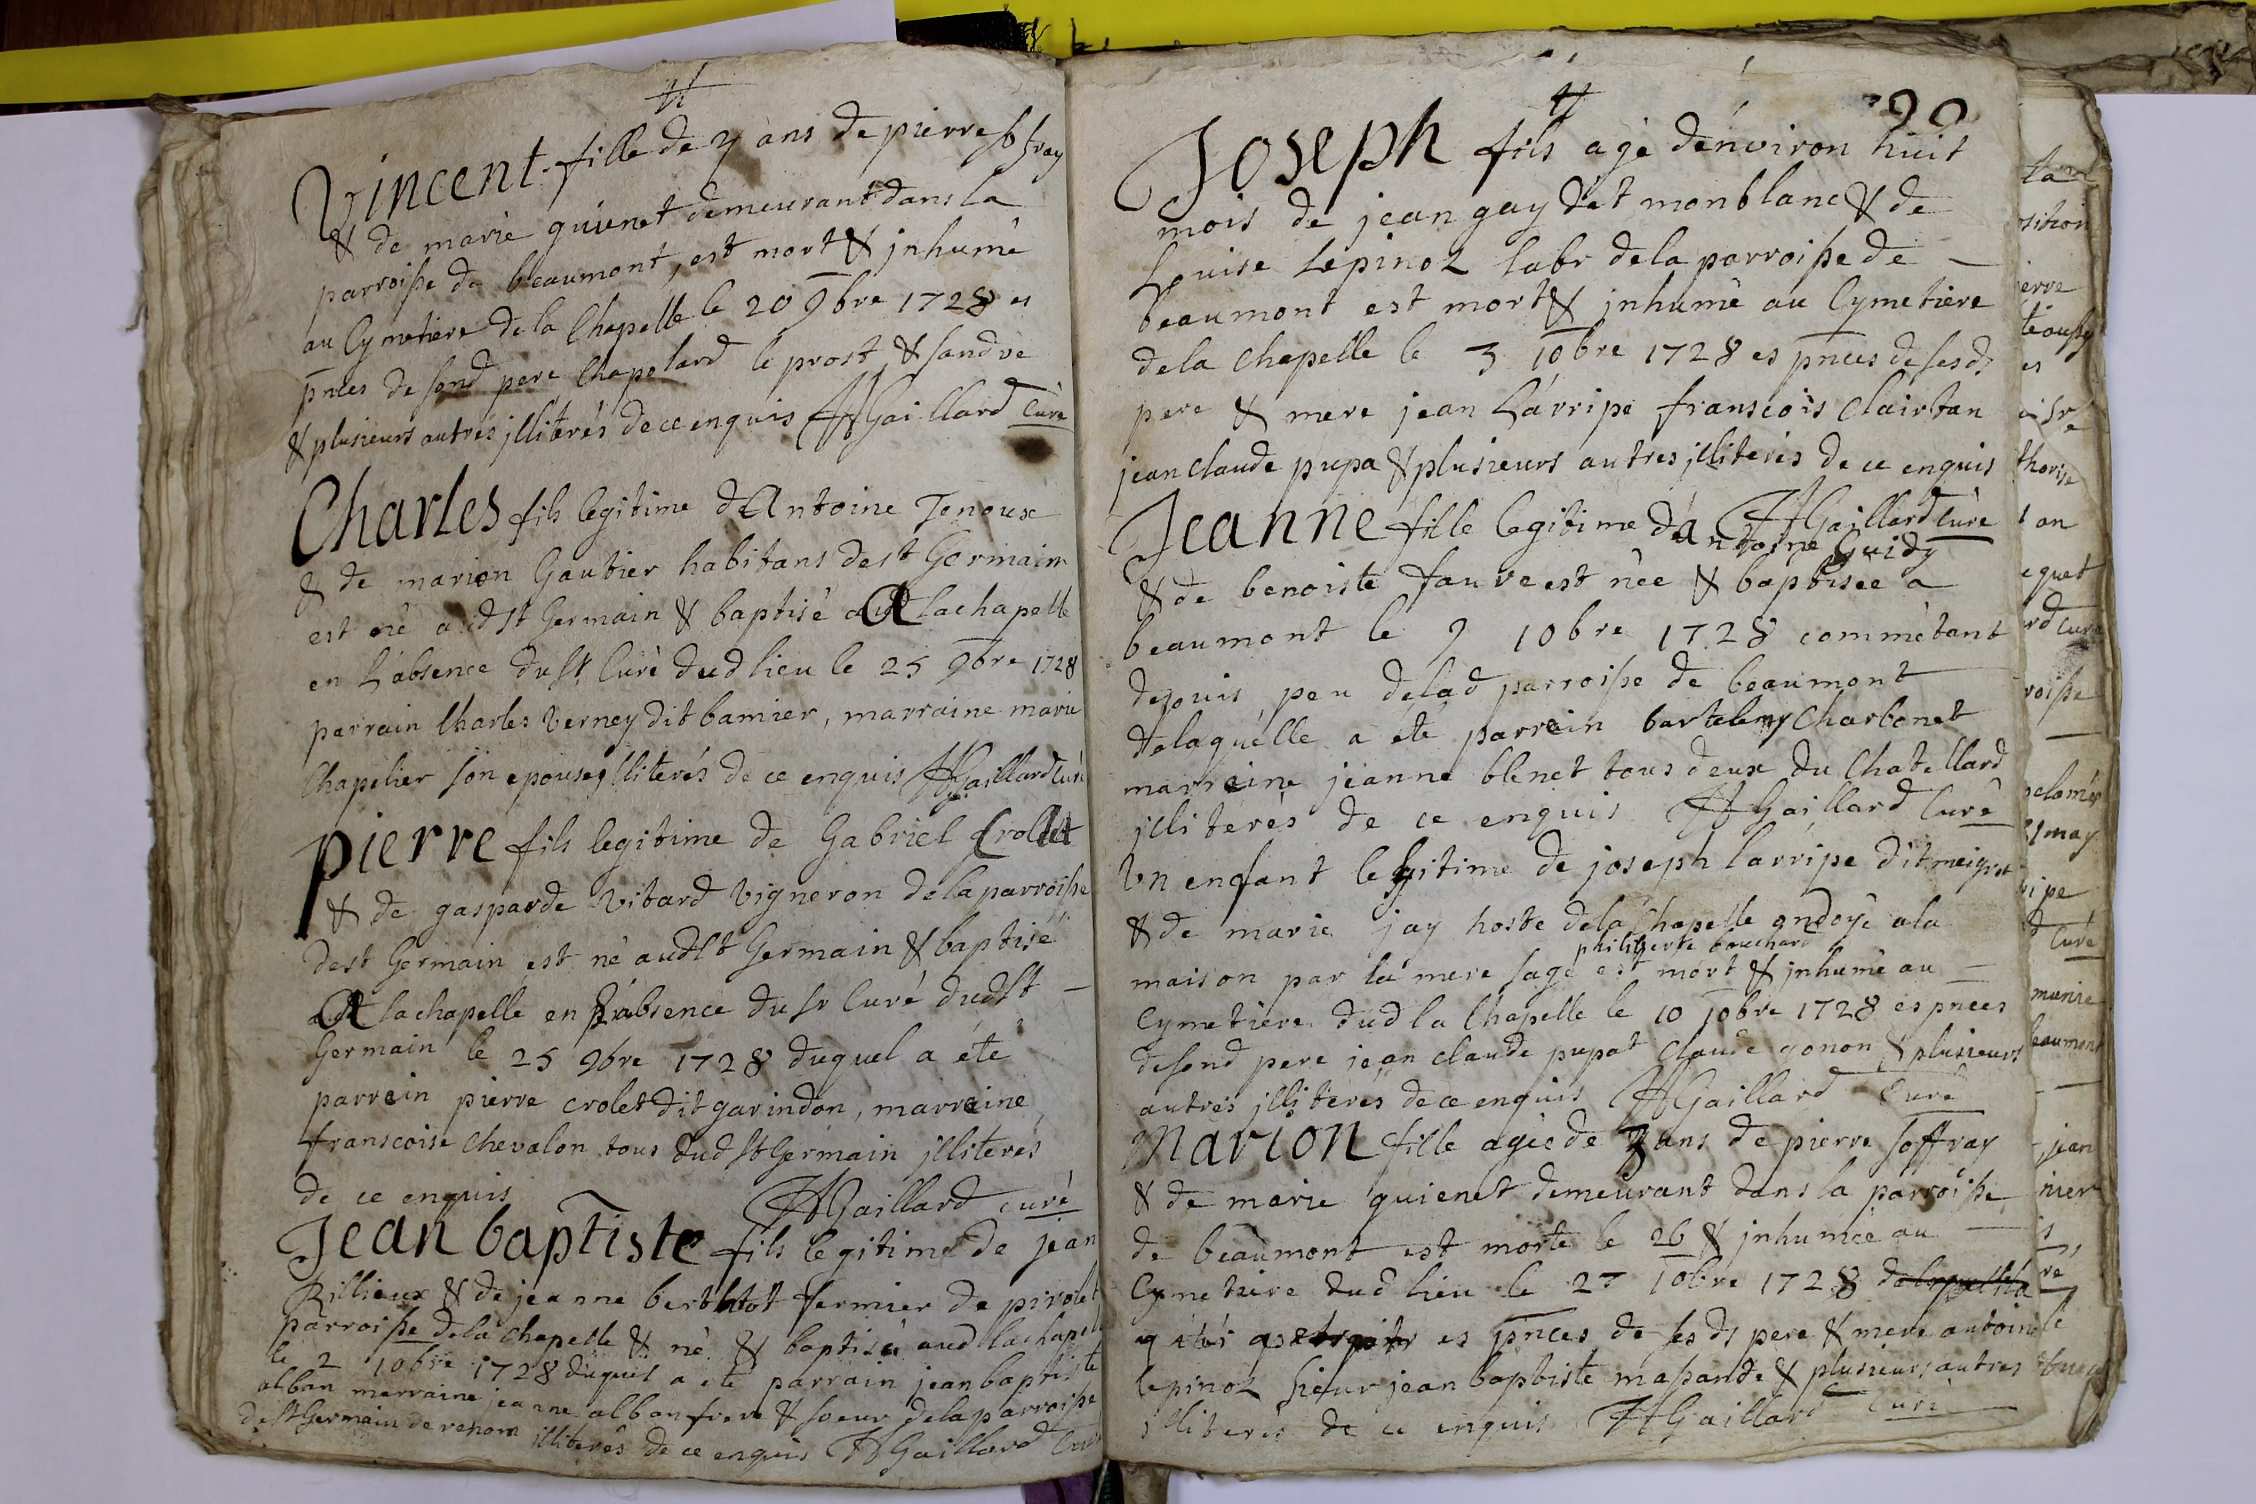 Vincent fille de 7 ans de pierre soffray
& de marie guienet demeurant dans la
parroisse de beaumont, est mort & jnhumé
au Cymetiere de la Chapelle le 20 9bre 1728 es
pnces de sond pere Chapelard le prost & sandre
& plusieurs autres jlliterés de ce enquis Gaillard Curé
Charles fils legitime d'Antoine Jenoux
& de marion Gautier habitans de st Germain
est né aud st Germain & baptisé A lachapelle
en L'absence du Sr Curé dud lieu le 25 9bre 1728
parrain Charles Verney dit bamier, marraine marie
Chapelier son epouse jlliterés de ce enquis Gaillard Curé
pierre fils legitime de Gabriel Crolet
& de gasparde Vitard Vigneron de la parroisse
de st Germain est né aud st Germain & baptisé
A lachapelle en L'absence du Sr Curé dud st
Germain le 25 9bre 1728 duquel a été
parrein pierre crolet dit garindon, marreine
franscoise chevalon tous dud st Germain jlliterés
de ce enquis Gaillard curé
Jean baptiste fils legitime de jean
Rillieux & de jeanne berthtot fermier de pirolet
parroisse de la chapelle & né & baptisé aud lachapelle
le 2 10bre 1728 duquel a été parrain jean baptiste
alban marraine jeanne alban frere & soeur de la parroisse
de st Germain de renom jlliterés de ce enquis Gaillard Curé
Joseph fils agé d'énviron huit
mois de jean gay dit monblanc & de
Louise Lepinoz labr de la parroisse de
beaumont est mort & jnhumé au Cymetiere
de la Chapelle le 3 10bre 1728 es pnces de sesds
pere & mere jean Lárripe franscois Clairtan
jean claude pupa & plusieurs autres jlliterés de ce enquis
Gaillard Curé
Jeanne fille legitime d'antoine Guidy
& de benoiste faure est née & baptisée a
beaumont le 9 10bre 1728 comme étant
depuis peu de lad parroisse de beaumont
de laquelle a été parrein bartelemy Charbonet
marreine jeanne blenet tous deux du Chatellard
jlliterés de ce enquis Gaillard Curé
Un enfant legitime de joseph larripe dit meigret
& de marie jay hoste de la Chapelle ondoyé a la
maison par la mere sage philiberte bouchard est mort & jnhumé au
Cymetiere dud la Chapelle le 10 10bre 1728 es pnces
de sond pere jean claude pupat Claude gonon & plusieurs
autres jlliterés de ce enquis Gaillard Curé
Marion fille agée de 3 ans de pierre soffray
& de marie guienet demeurant dans la parroisse
de beaumont est morte le 26 & jnhumée au
Cymetiere dud lieu le 27 10bre 1728
es pnces de sesds pere & mere antoine
lepinoz sieur jean baptiste massande & plusieurs autres
jlliterés de ce enquis Gaillard Curé